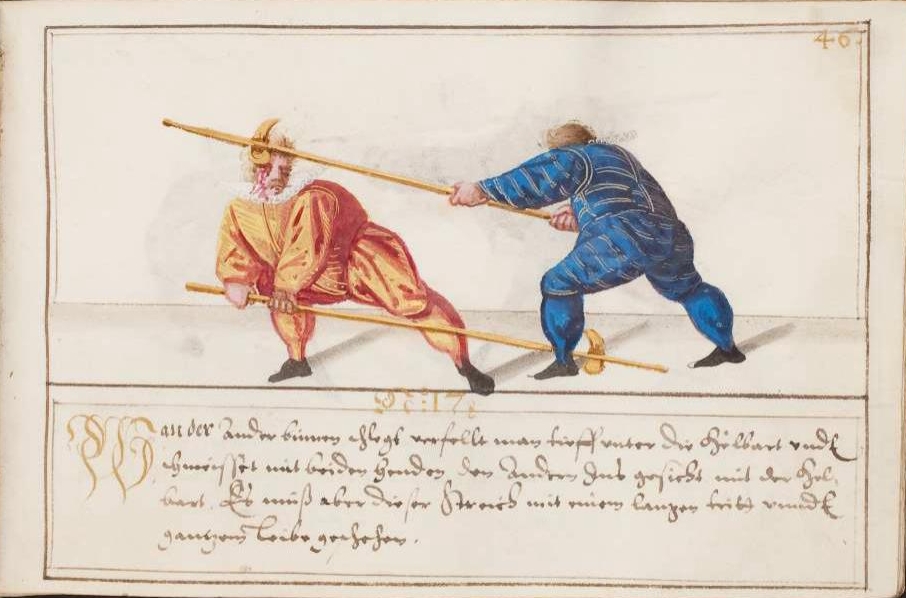 46
N: 17.
Wan der ander binnen schlegt verfellt man tieff unter die Helbart undt
schmeisset mit beiden Henden den Andern Ins gesicht mit der Hel-
bart. Es muß aber dieser Streich mit einem langen tritt unndt
gantzem leibe geschehen.